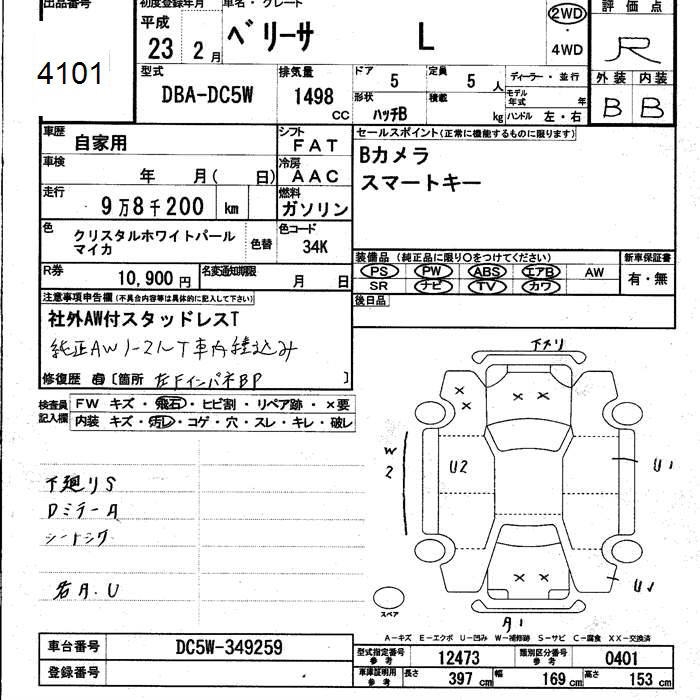 出品番号
4101
初度登録年月
平成
23 2 月
車名・グレード
ベリーサ L
2WD
・
4WD
評価点
R
外装 内装
B B
型式
DBA-DC5W
排気量
1498 CC
ドア
5
定員
5 人
形状
ハッチB
積載
kg
ディーラー・並行
モデル年式 年
ハンドル 左・右
車歴
自家用
シフト
FAT
車検
年 月( 日)
冷房
AAC
走行
9万8千200 km
燃料
ガソリン
色
クリスタルホワイトパール
マイカ
色替
色コード
34K
R券
10,900円
名変通知期限
月 日
セールスポイント(正常に機能するものに限ります)
Bカメラ
スマートキー
装備品(純正品に限り○をつけてください)
PS PW ABS エアB AW
SR ナビ TV カワ
新車保証書
有・無
後日品
注意事項申告欄(不具合内容等は具体的に記入して下さい)
社外AW付スタッドレスT
純正AWノーマルT車内積込み
修復歴 有 〔箇所 左Fインパネ BP 〕
検査員
記入欄
FW キズ・飛石・ヒビ割・リペア跡・×要
内装 キズ・汚レ・コゲ・穴・スレ・キレ・破レ
下廻りS
シートシワ
下スリ
W2
U2
U1
スペア
A1
A-キズ E-エクボ U-凹み W-補修跡 S-サビ C-腐食 XX-交換済
車台番号
DC5W-349259
登録番号
型式指定番号
参考
12473
類別区分番号
参考
0401
車庫証明用
参考
長さ 397 cm 幅 169 cm 高さ 153 cm